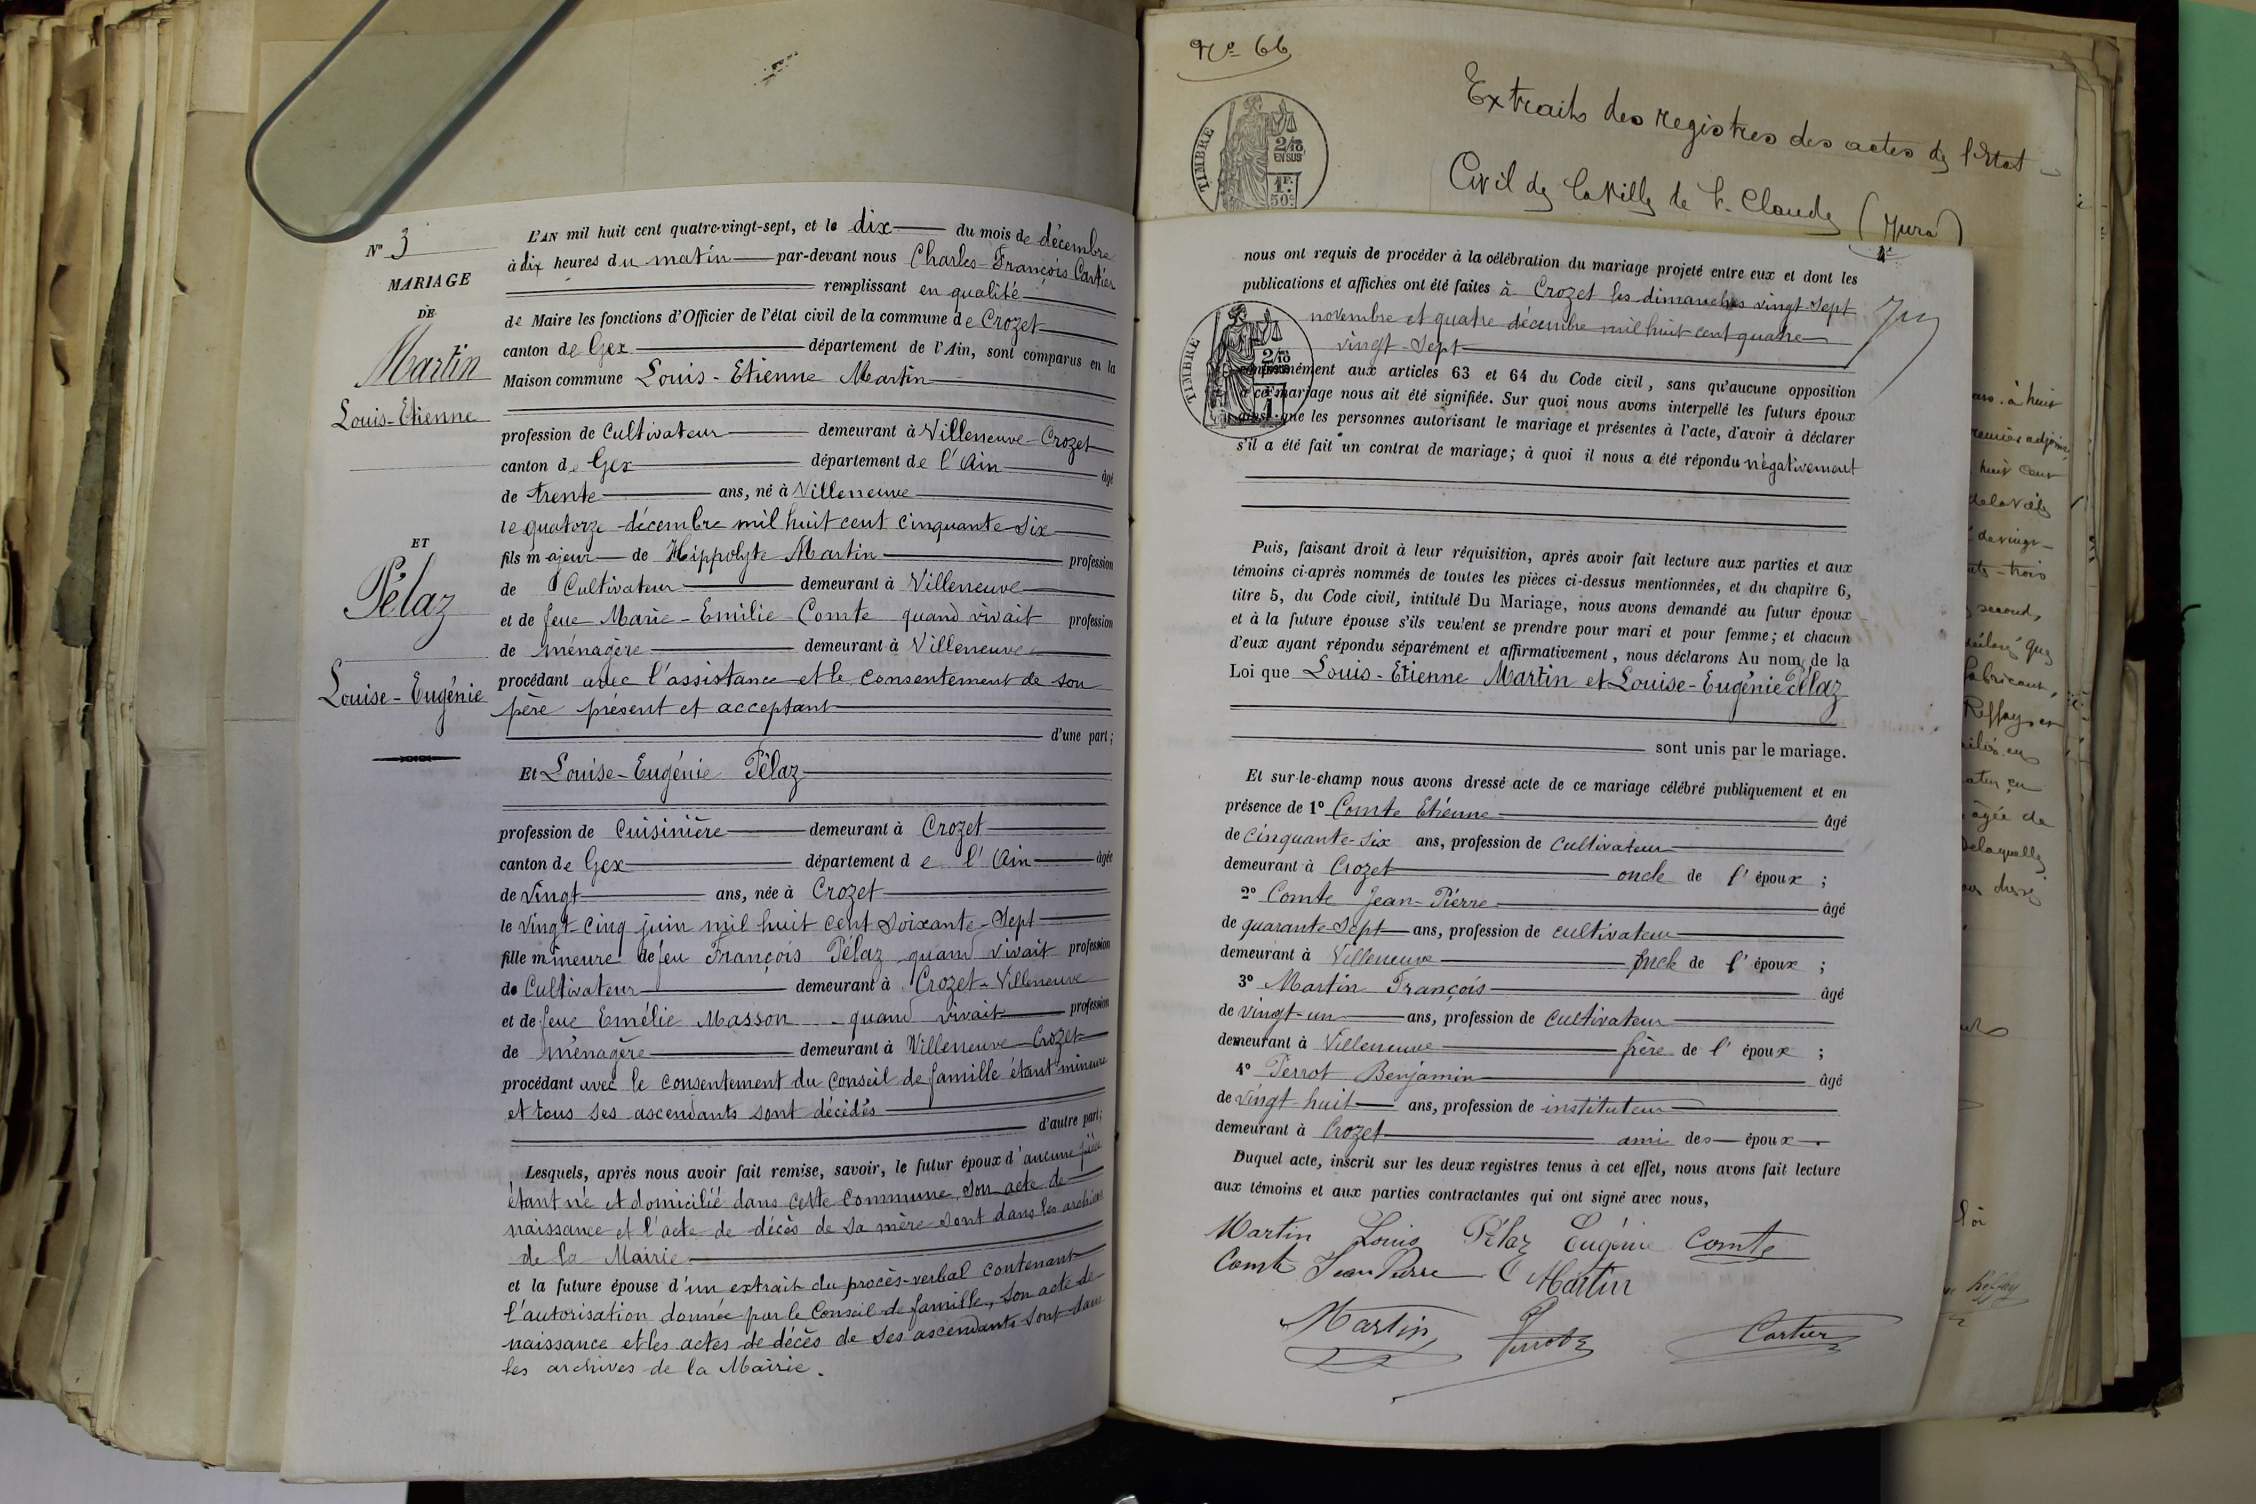 N° 3
MARIAGE
DE
Martin
Louis-Etienne
ET
Pélaz
Louise-Eugénie
L'AN mil huit cent quatre-vingt-sept, et le dix du mois de décembre
à dix heures du matin par-devant nous Charles-François Cartier
remplissant en qualité
de Maire les fonctions d'Officier de l'état civil de la commune de Crozet
canton de Gex département de l'Ain, sont comparus en la
Maison commune Louis-Etienne Martin
profession de Cultivateur demeurant à Villeneuve-Crozet
canton de Gex département de l'Ain âgé
de trente ans, né à Villeneuve
le quatorze décembre mil huit cent cinquante-six
fils majeur de Hippolyte Martin profession
de Cultivateur demeurant à Villeneuve
et de feue Marie-Emilie Comte quand vivait profession
de ménagère demeurant à Villeneuve
procédant avec l'assistance et le consentement de son
père présent et acceptant
d'une part;
Et Louise-Eugénie Pélaz
profession de Cuisinière demeurant à Crozet
canton de Gex département de l'Ain âgée
de vingt ans, née à Crozet
le vingt-cinq juin mil huit cent soixante-sept
fille mineure de feu François Pélaz quand vivait profession
de Cultivateur demeurant à Crozet-Villeneuve
et de feue Emélie Masson quand vivait profession
de ménagère demeurant à Villeneuve-Crozet
procédant avec le consentement du Conseil de famille étant mineure
et tous ses ascendants sont décédés
d'autre part;
Lesquels, après nous avoir fait remise, savoir, le futur époux d'aucune pièce
étant né et domicilié dans cette commune, son acte de
naissance et l'acte de décès de sa mère sont dans les archives
de la Mairie
et la future épouse d'un extrait du procès-verbal contenant
l'autorisation donnée par le Conseil de famille, son acte de
naissance et les actes de décès de ses ascendants sont dans
les archives de la Mairie.
N° 66
Extraits des registres des actes de l'Etat
Civil de la Ville de St. Claude (Jura)
TIMBRE
2/10
EN SUS
1F.
50c.
nous ont requis de procéder à la célébration du mariage projeté entre eux et dont les
publications et affiches ont été faites à Crozet les dimanches vingt-sept
novembre et quatre décembre mil huit cent quatre
vingt-sept
TIMBRE
2/10
conformément aux articles 63 et 64 du Code civil, sans qu'aucune opposition
à ce mariage nous ait été signifiée. Sur quoi nous avons interpellé les futurs époux
ainsi que les personnes autorisant le mariage et présentes à l'acte, d'avoir à déclarer
s'il a été fait un contrat de mariage; à quoi il nous a été répondu négativement
Puis, faisant droit à leur réquisition, après avoir fait lecture aux parties et aux
témoins ci-après nommés de toutes les pièces ci-dessus mentionnées, et du chapitre 6,
titre 5, du Code civil, intitulé Du Mariage, nous avons demandé au futur époux
et à la future épouse s'ils veulent se prendre pour mari et pour femme; et chacun
d'eux ayant répondu séparément et affirmativement, nous déclarons Au nom de la
Loi que Louis-Etienne Martin et Louise-Eugénie Pélaz
sont unis par le mariage.
Et sur-le-champ nous avons dressé acte de ce mariage célébré publiquement et en
présence de 1° Comte Etienne âgé
de cinquante-six ans, profession de cultivateur
demeurant à Crozet oncle de l'époux;
2° Comte Jean-Pierre âgé
de quarante-sept ans, profession de cultivateur
demeurant à Villeneuve oncle de l'époux;
3° Martin François âgé
de vingt-un ans, profession de cultivateur
demeurant à Villeneuve frère de l'époux;
4° Perrot Benjamin âgé
de vingt-huit ans, profession de instituteur
demeurant à Crozet ami des époux.
Duquel acte, inscrit sur les deux registres tenus à cet effet, nous avons fait lecture
aux témoins et aux parties contractantes qui ont signé avec nous,
Martin Louis Pélaz Eugénie Comte
Comte Jean Pierre E Martin
Martin Perrot Cartier